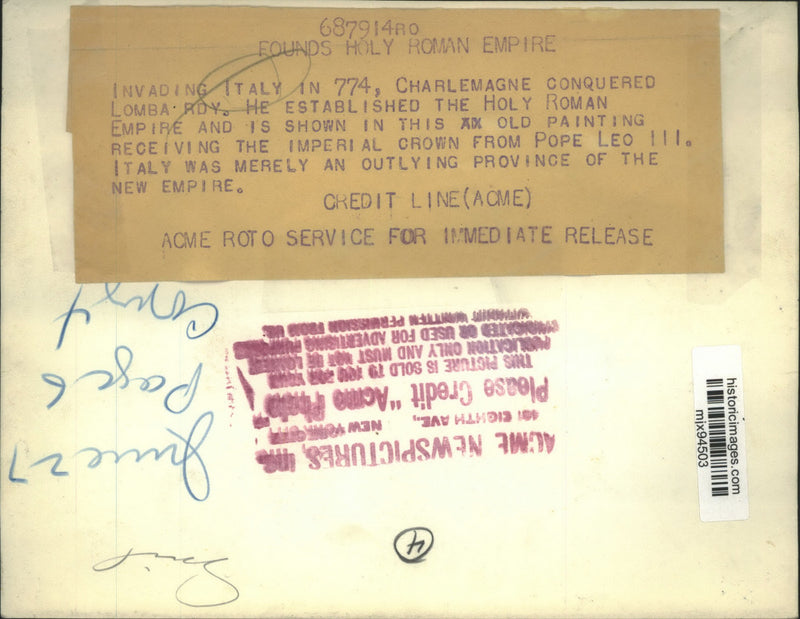 687914RO
FOUNDS HOLY ROMAN EMPIRE
INVADING ITALY IN 774, CHARLEMAGNE CONQUERED
LOMBA RDY. HE ESTABLISHED THE HOLY ROMAN
EMPIRE AND IS SHOWN IN THIS AN OLD PAINTING
RECEIVING THE IMPERIAL CROWN FROM POPE LEO III.
ITALY WAS MERELY AN OUTLYING PROVINCE OF THE
NEW EMPIRE.
CREDIT LINE(ACME)
ACME ROTO SERVICE FOR IMMEDIATE RELEASE
June 27
Page 6
ACME NEWSPICTURES, INC
461 EIGHTH AVE., NEW YORK CITY
Please Credit "Acme Photo"
THIS PICTURE IS SOLD TO YOU FOR YOUR
PUBLICATION ONLY AND MUST NOT BE LOANED
SYNDICATED OR USED FOR ADVERTISING PURPOSES
WITHOUT WRITTEN PERMISSION FROM US.
historicimages.com
mix94503
4